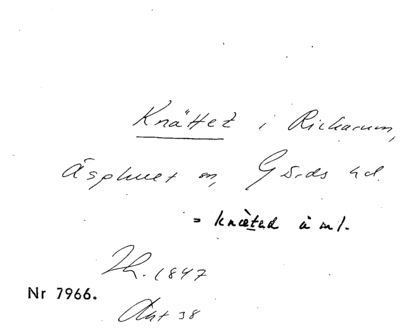 Knättet i Rickarum,
Äsphult sn, Gärds hd.
= knætad å ml.
Th. 1847
Nr 7966.
Akt 38